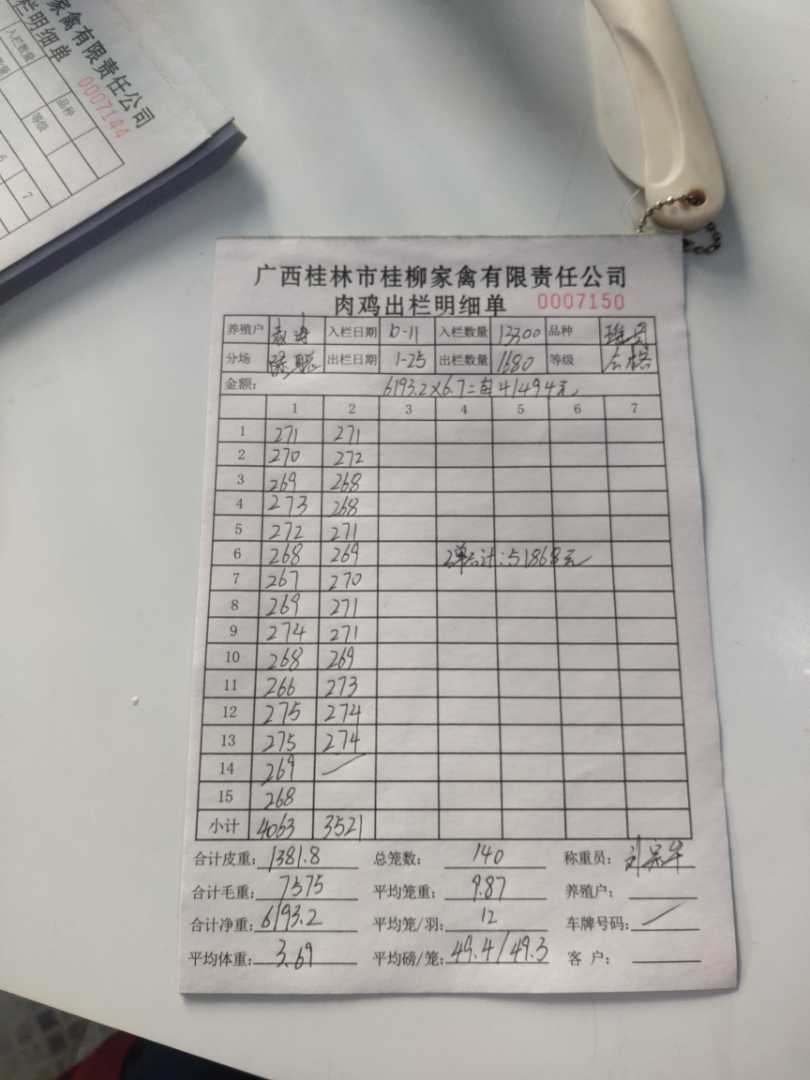 家禽有限责任公司
栏明细单
0007144
入栏数量
数量
品种
等级
6
7
广西桂林市桂柳家禽有限责任公司
肉鸡出栏明细单 0007150
养殖户 入栏日期 10-11 入栏数量 13300 品种
分场 出栏日期 1-25 出栏数量 1680 等级 合格
金额: 6193.2×6.7= 41494元
1 2 3 4 5 6 7
1 271 271
2 270 272
3 269 268
4 273 268
5 272 271
6 268 269 2单合计:51868元
7 267 270
8 269 271
9 274 271
10 268 269
11 266 273
12 275 274
13 275 274
14 269
15 268
小计 4063 3521
合计皮重: 1381.8 总笼数: 140 称重员:
合计毛重: 7575 平均笼重: 9.87 养殖户:
合计净重: 6193.2 平均笼/羽: 12 车牌号码:
平均体重: 3.69 平均磅/笼: 49.4/49.3 客户: